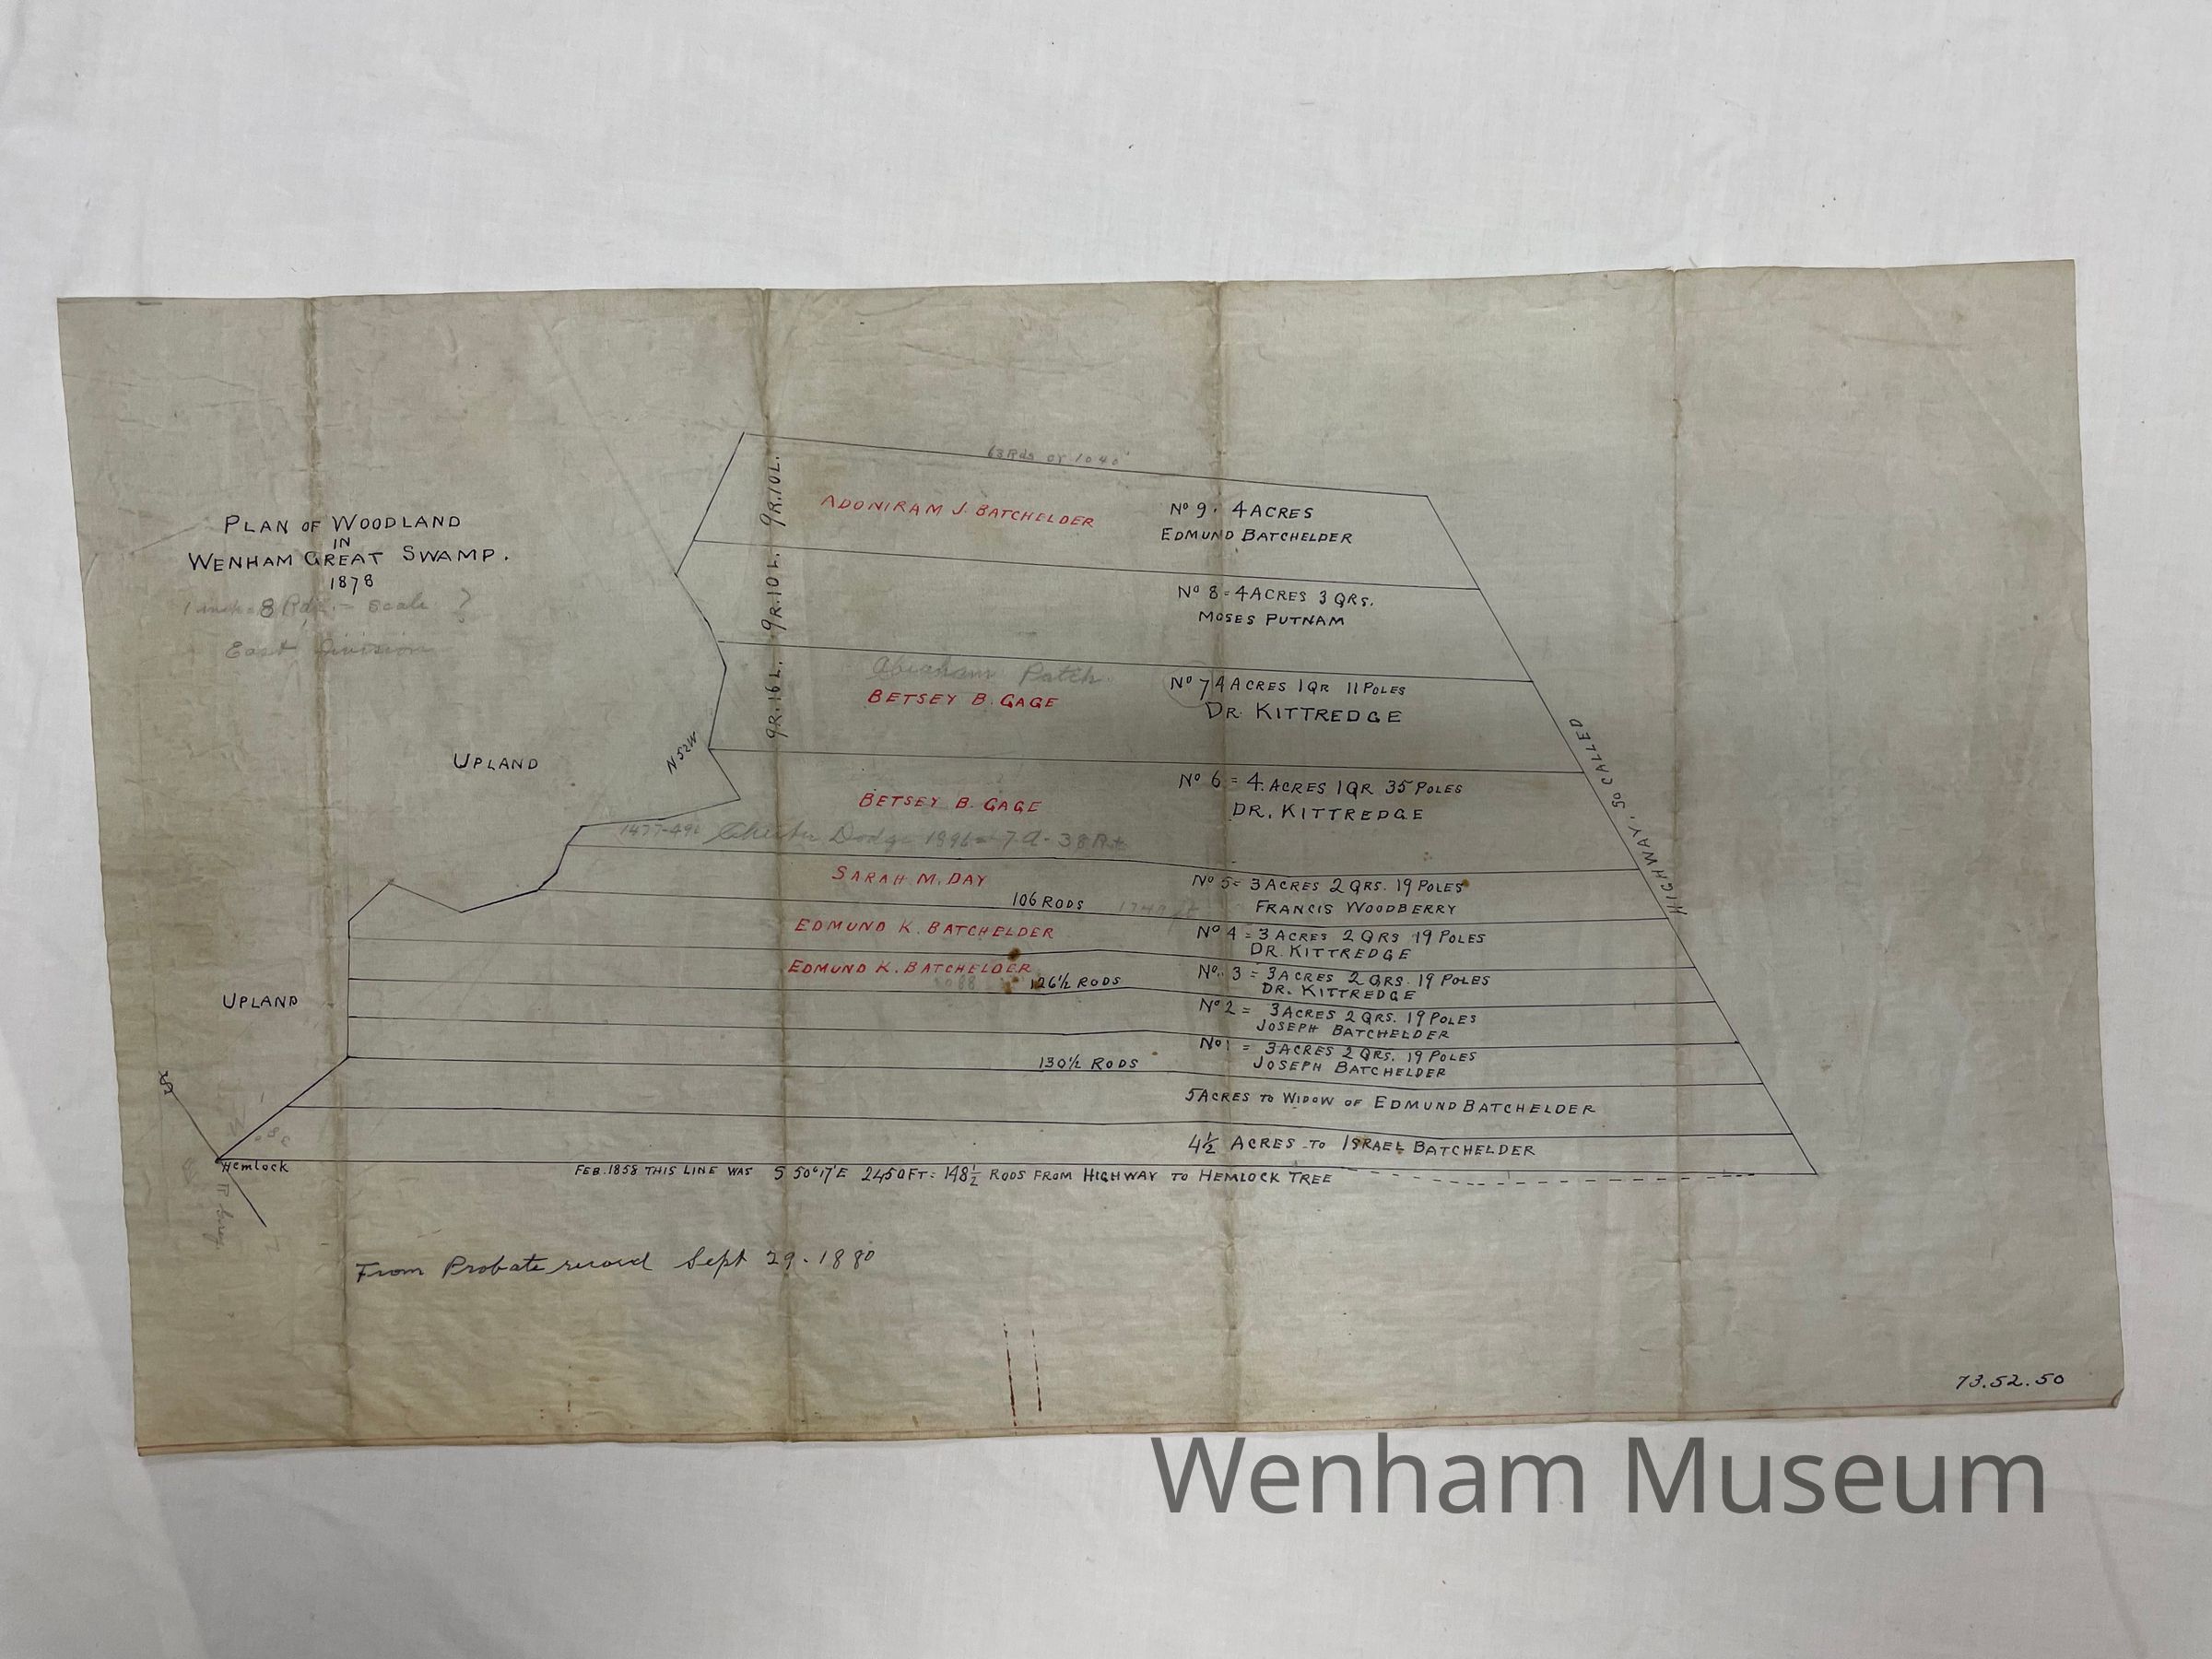 PLAN OF WOODLAND
IN
WENHAM GREAT SWAMP.
1878
1 inch = 8 Rds. - scale ?
East Division
68 Rds or 1040
9R.10L.
ADONIRAM J. BATCHELDER
No 9. 4 ACRES
EDMUND BATCHELDER
9R.10L.
No 8 = 4 ACRES 3 QRS.
MOSES PUTNAM
9R.16L.
Abraham Patch
BETSEY B. GAGE
No 7 4 ACRES 1 QR 11 POLES
DR. KITTREDGE
HIGHWAY, SO CALLED
UPLAND
N52W
BETSEY B. GAGE
No 6 = 4 ACRES 1 QR 35 POLES
DR. KITTREDGE
Dodge
SARAH M. DAY
No 5 = 3 ACRES 2 QRS. 19 POLES
106 RODS
FRANCIS WOODBERRY
EDMUND K. BATCHELDER
No 4 = 3 ACRES 2 QRS 19 POLES
DR. KITTREDGE
EDMUND K. BATCHELDER
No. 3 = 3 ACRES 2 QRS. 19 POLES
126½ RODS
DR. KITTREDGE
UPLAND
No 2 = 3 ACRES 2 QRS. 19 POLES
JOSEPH BATCHELDER
No 1 = 3 ACRES 2 QRS. 19 POLES
130½ RODS
JOSEPH BATCHELDER
5 ACRES TO WIDOW OF EDMUND BATCHELDER
4½ ACRES TO ISRAEL BATCHELDER
Hemlock
FEB. 1858 THIS LINE WAS S 50°17'E 2450 FT = 148½ RODS FROM HIGHWAY TO HEMLOCK TREE
From Probate record Sept 29. 1880
73.52.50
Wenham Museum